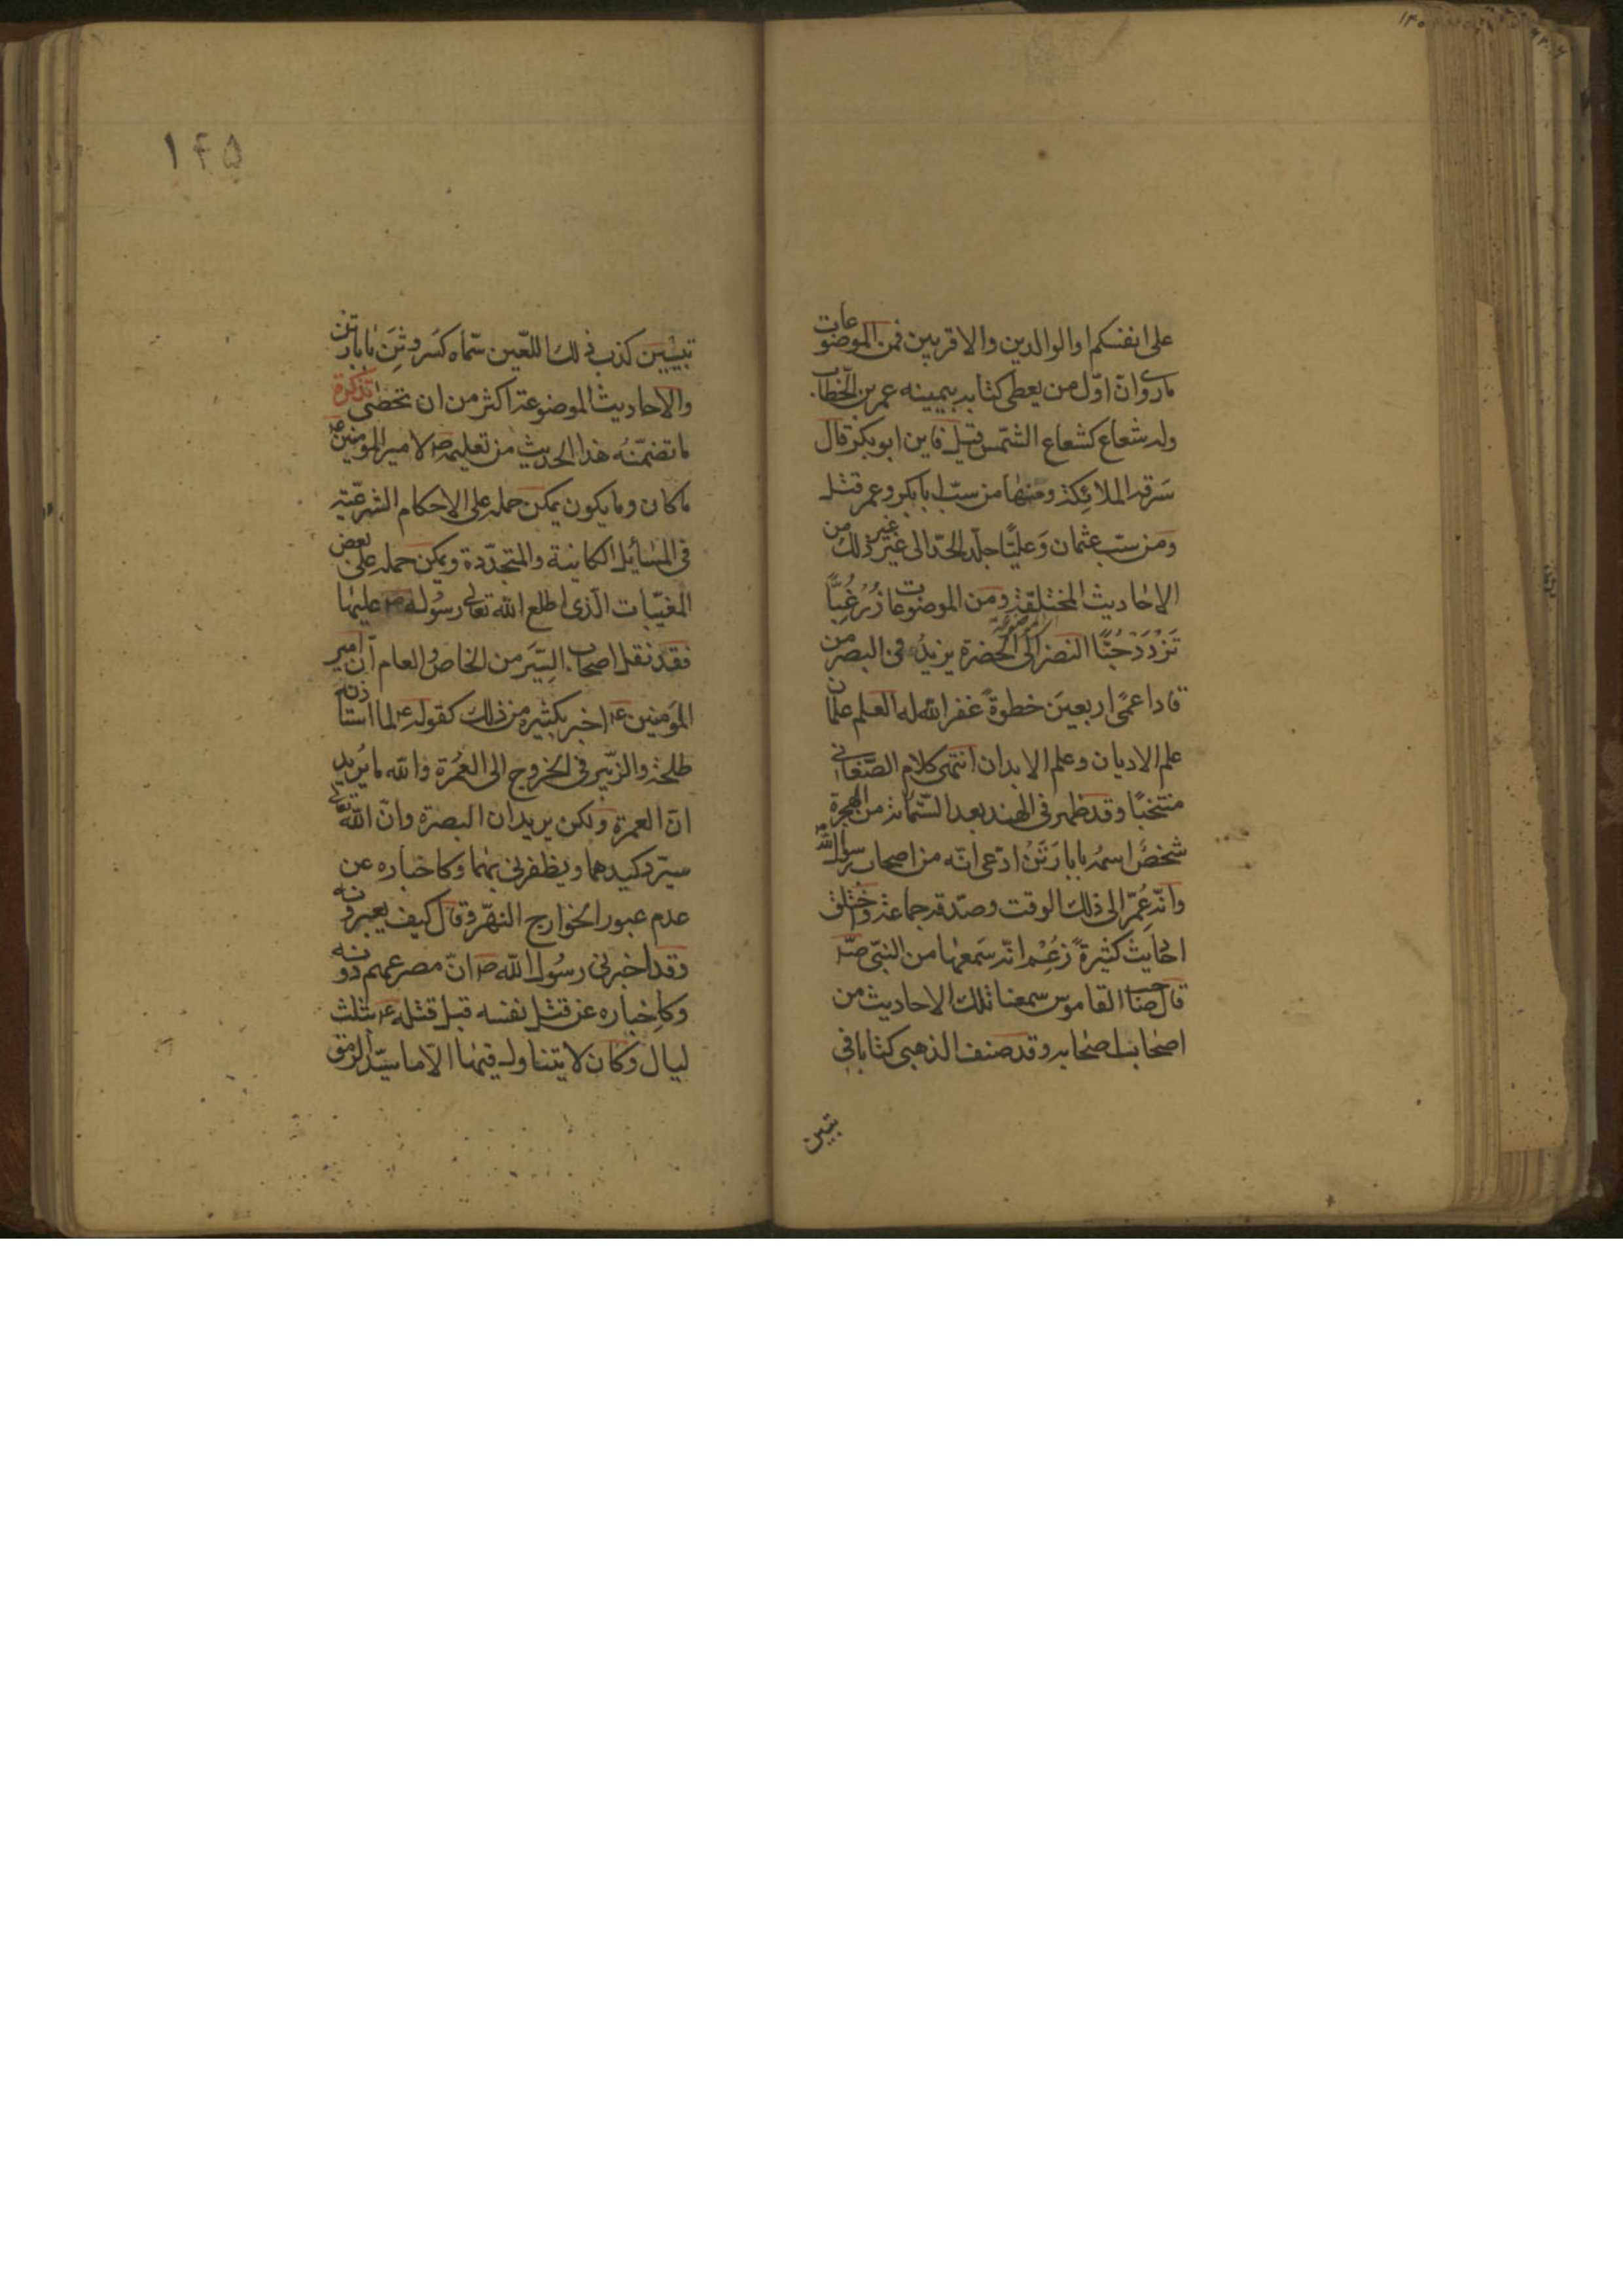 على انفسكم او الوالدين والاقربين فمن الموضوعات
ما روى ان اوّل من يعطى كتابه بيمينه عمر بن الخطاب
وله شعاع كشعاع الشمس قيل فاين ابو بكر قال
سرقه الملائكة ومنها من سبّ ابا بكر وعمر قتل
ومن سبّ عثمان وعليًّا جلّد الحدّ الى غير ذلك من
الاحاديث المختلقة ومن الموضوعات زُرْ غِبًّا
تَزْدَدْ حُبًّا النصر الى الخضرة يزيد فى البصر من
قاد اعمى اربعين خطوةً غفر الله له العلم علمان
علم الاديان وعلم الابدان انتهى كلام الصّغانى
منتخبًا وقد ظهر فى الهند بعد الستّمائة من الهجرة
شخصٌ اسمه بابا رَتَنْ ادّعى انّه من اصحاب رسول الله
وانّه عُمّر الى ذلك الوقت وصدّقه جماعة واختلق
احاديث كثيرةً زعم انّه سمعها من النبىّ ص
قال صاحب القاموس سمعنا تلك الاحاديث من
اصحاب اصحابه وقد صنف الذهبى كتابا فى
تبيين
١٤٥
تبيين كذب ذلك اللعّين سمّاه كسر وثن بابا رتن
والاحاديث الموضوعة اكثر من ان تحصى تذكرة
ما تضمّنه هذا الحديث من تعليمه ص لامير المؤمنين ع
ما كان وما يكون يمكن حمله على الاحكام الشرعيّة
فى المسائل الكاينة والمتجدّدة ويمكن حمله على بعض
المغيّبات الّذى اطلع الله تعالى رسوله ص عليها
فقد نقل اصحاب السِّيَر من الخاص والعام أن امير
المؤمنين ع اخبر بكثير من ذلك كقوله ع لما استاذنه
طلحة والزّبير فى الخروج الى العُمْرة والله ما يُريد
ان العمرة ولكن يريدان البصرة وانّ الله تعالى
سيرد كيدهما ويظفرنى بهما وكاخباره عن
عدم عبور الخوارج النهر وقال كيف يعبرونه
وقد اخبرنى رسُول الله ص انّ مصرعهم دونه
وكاخباره عن قتل نفسه قبل قتله ع بثلث
ليال وكان لا يتناول فيها الّا ما يسدّ الرمق